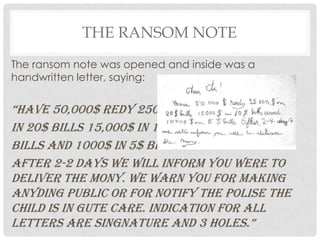 THE RANSOM NOTE
The ransom note was opened and inside was a
handwritten letter, saying:
“HAVE 50,000$ REDY 250
IN 20$ BILLS 15,000$ IN 1
BILLS AND 1000$ IN 5$ B
AFTER 2-2 DAYS WE WILL INFORM YOU WERE TO
DELIVER THE MONY. WE WARN YOU FOR MAKING
ANYDING PUBLIC OR FOR NOTIFY THE POLISE THE
CHILD IS IN GUTE CARE. INDICATION FOR ALL
LETTERS ARE SINGNATURE AND 3 HOLES.”
Dear Sir!
Have 50.000 $ redy 25000 $ in
20 $ bills 15000 $ in 10 $ bills and
10000 $ in 5 $ bills After 2-4 days
we will inform you were to deliver
the mony.